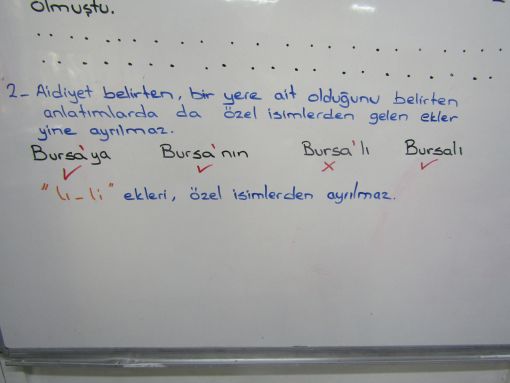 olmuştu.
2- Aidiyet belirten, bir yere ait olduğunu belirten
anlatımlarda da özel isimlerden gelen ekler
yine ayrılmaz.
Bursa'ya Bursa'nın Bursa'lı Bursalı
"lı-li" ekleri, özel isimlerden ayrılmaz.